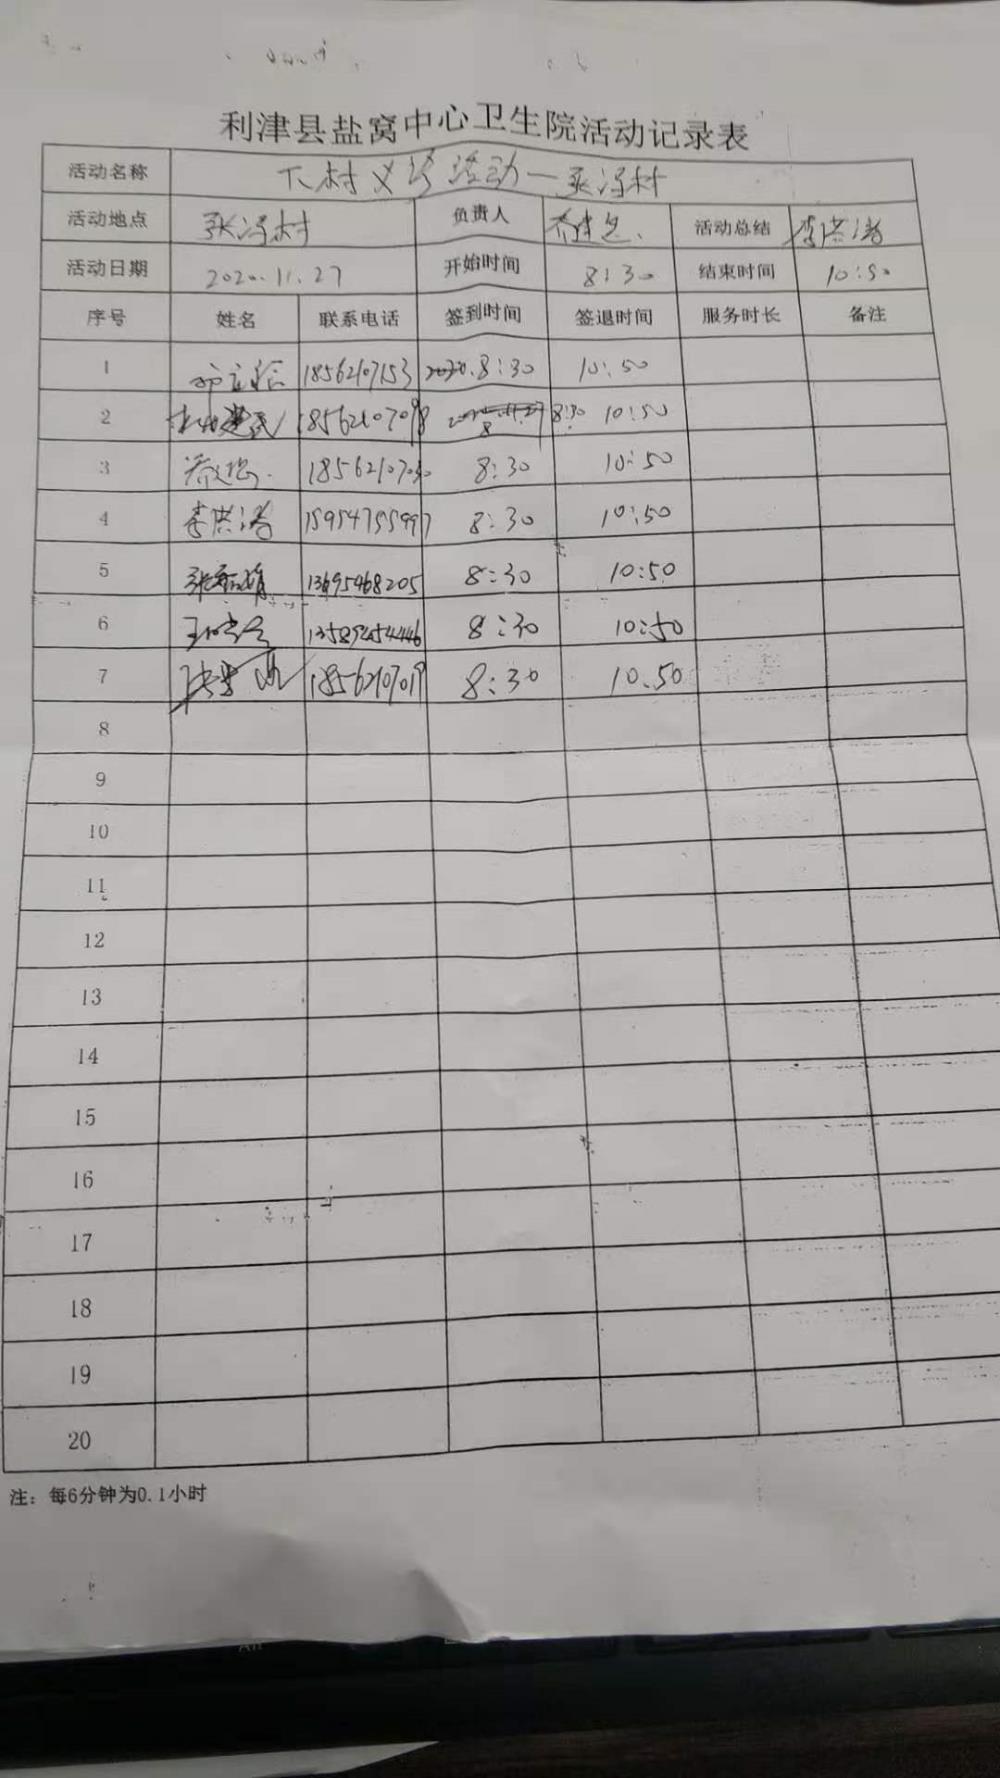 利津县盐窝中心卫生院活动记录表
活动名称 下村义诊活动—张冯村
活动地点 张冯村 负责人 活动总结 李洪涛
活动日期 2020.11.27 开始时间 8:30 结束时间 10:50
序号 姓名 联系电话 签到时间 签退时间 服务时长 备注
1 18562107153 8:30 10:50
2 8:30 10:50
3 8:30 10:50
4 李洪涛 15954755997 8:30 10:50
5 13695468205 8:30 10:50
6 8:30 10:50
7 18562107019 8:30 10.50
8
9
10
11
12
13
14
15
16
17
18
19
20
注：每6分钟为0.1小时